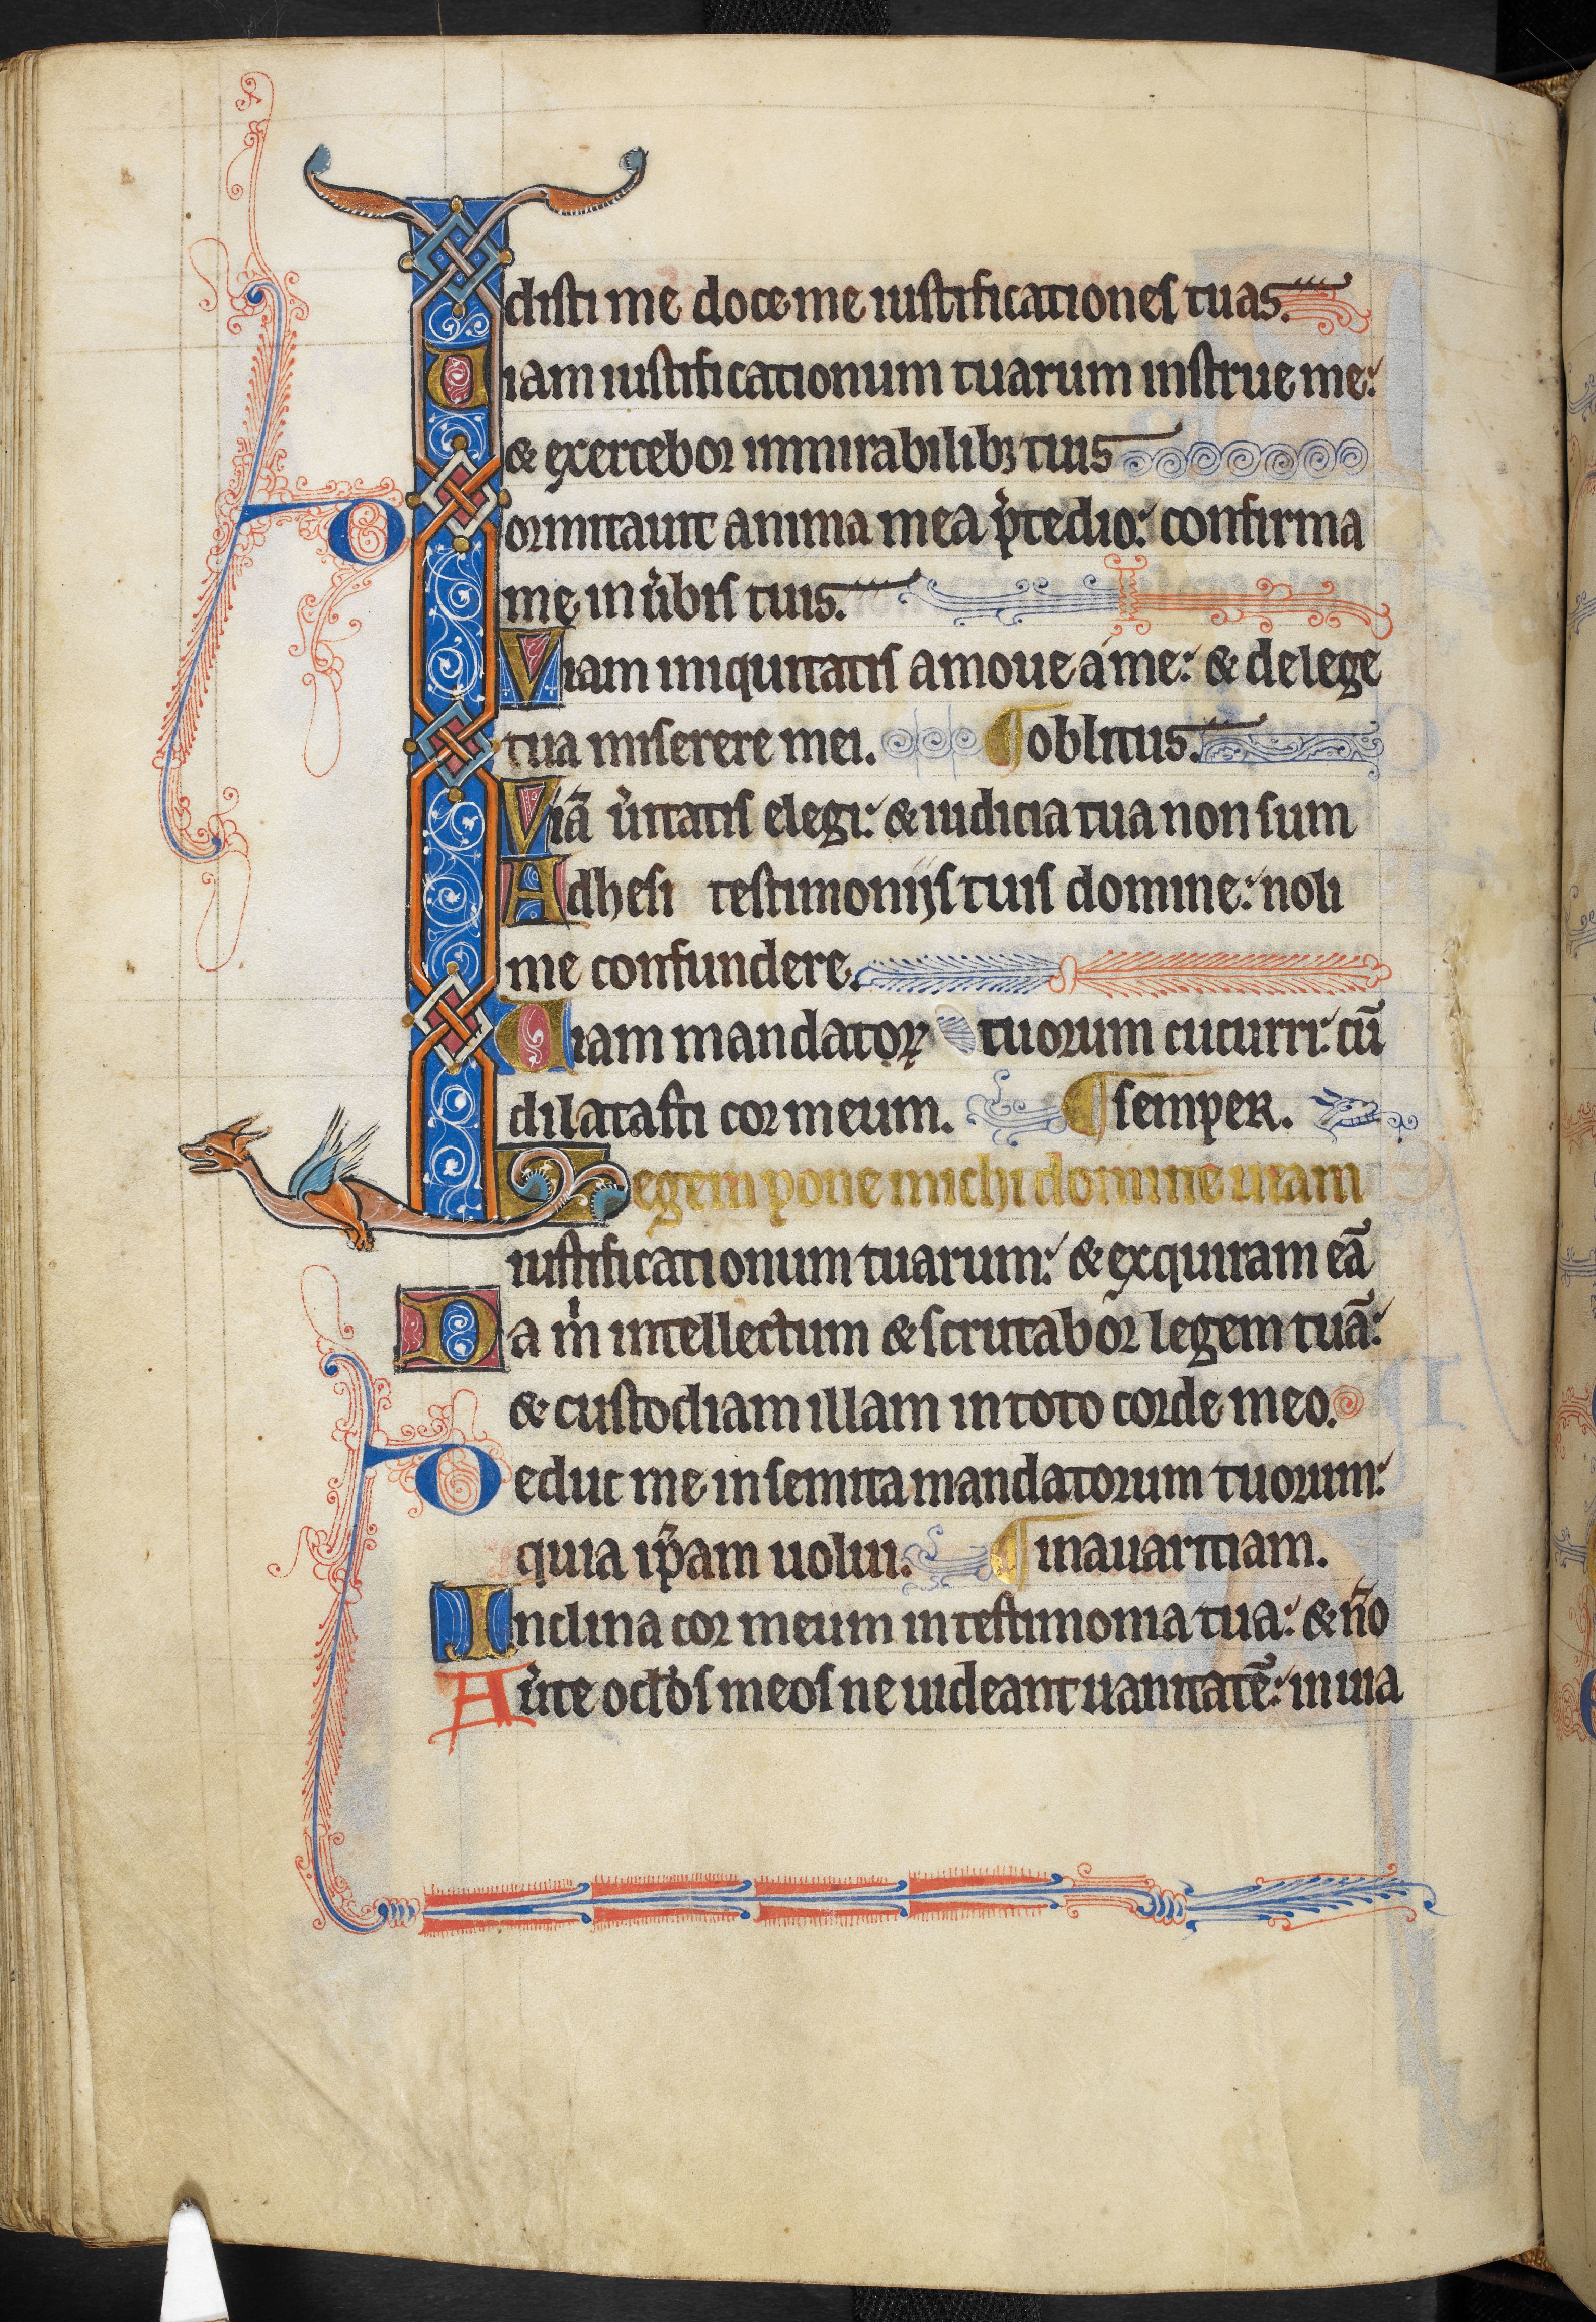 disti me doce me iustificationes tuas.
Uiam iustificationum tuarum instrue me:
& exercebor inmirabilibꝫ tuis
Dormitauit anima mea p̾tedio: confirma
me in u̾bis tuis.
Viam iniquitatis amoue a me: & de lege
tua miserere mei. ¶ oblitus.
Viā u̾itatis elegi: & iudicia tua non sum
Adhesi testimoniis tuis domine: noli
me confundere.
Uiam mandatoꝝ tuorum cucurri: cū
dilatasti cor meum. ¶ semper.
Legem pone michi domine uiam
iustificationum tuarum: & exquiram eā
Da m̊ intellectum & scrutabor legem tuā:
& custodiam illam in toto corde meo.
Deduc me in semita mandatorum tuorum:
quia ip̄am uolui. ¶ inauaritiam.
Inclina cor meum in testimonia tua: & nō
Au̾te oc̄los meos ne uideant uanitatē: in uia